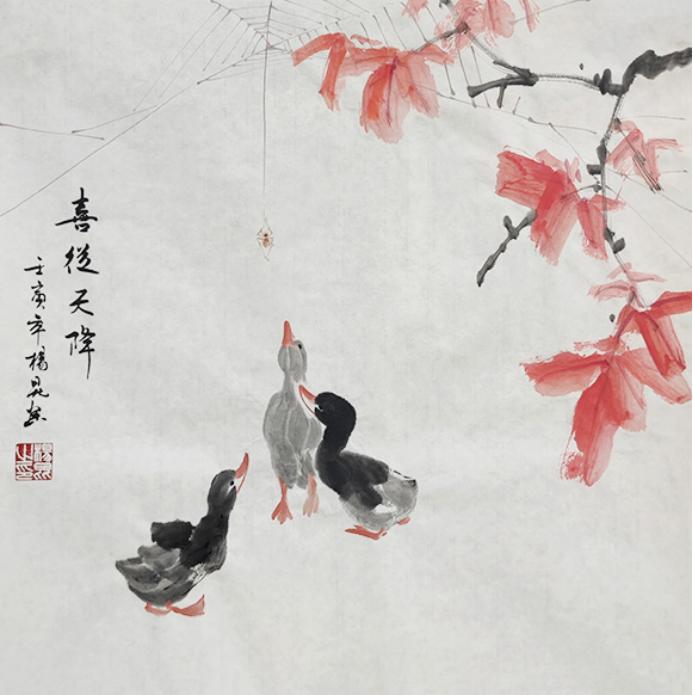 喜從天降
壬寅年楊昆畫